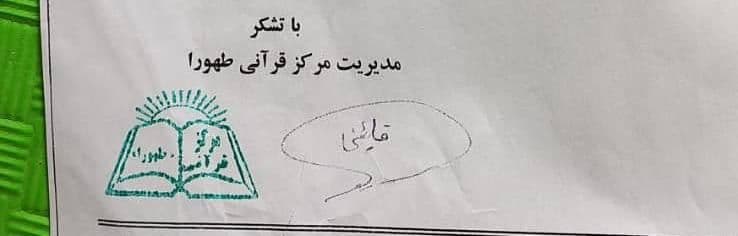 با تشکر
مدیریت مرکز قرآنی طهورا
مرکز
قرآنی
طهورا